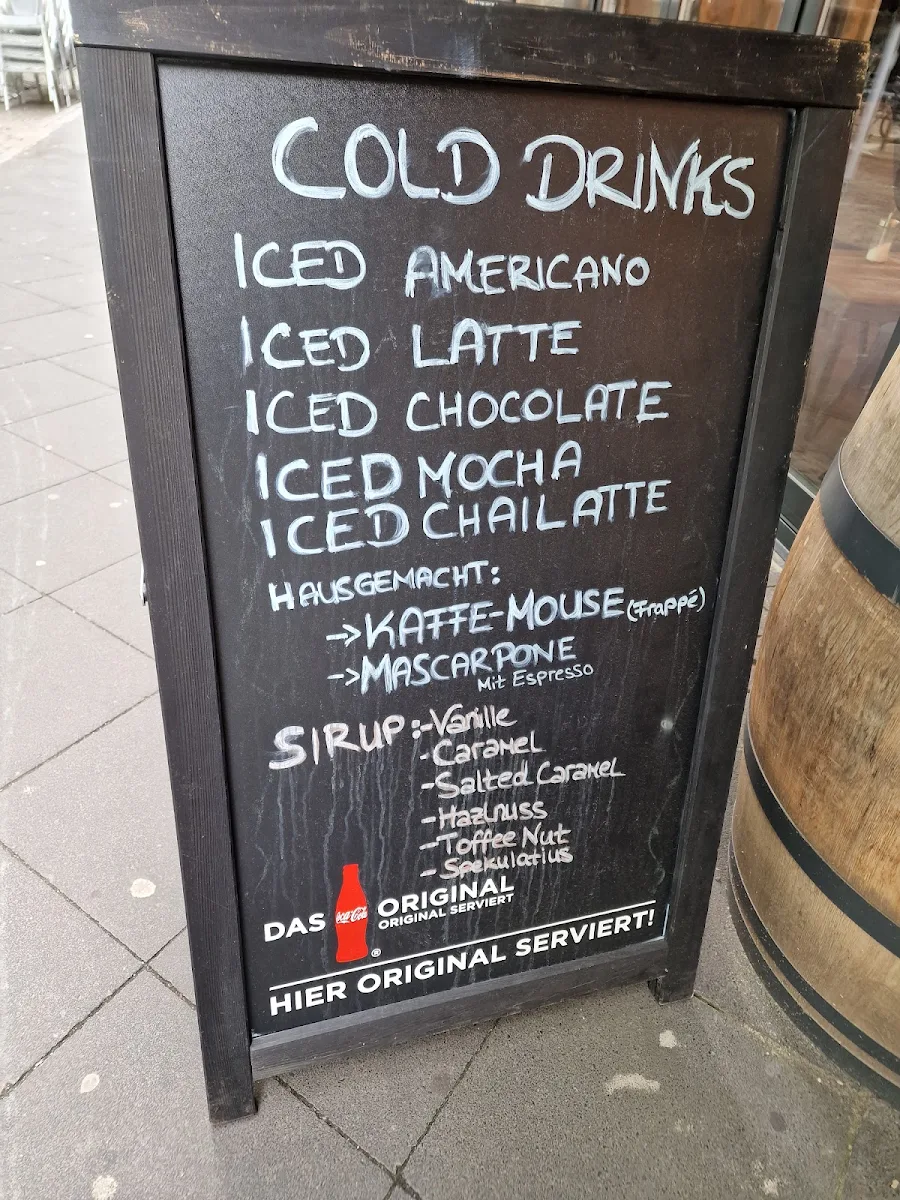 COLD DRINKS
ICED AMERICANO
ICED LATTE
ICED CHOCOLATE
ICED MOCHA
ICED CHAILATTE
HAUSGEMACHT:
->KAFFE-MOUSE (Frappé)
->MASCARPONE
Mit Espresso
SIRUP:-Vanille
-Caramel
-Salted Caramel
-Hazlnuss
-Toffee Nut
-Spekulatius
DAS Coca-Cola ® ORIGINAL
ORIGINAL SERVIERT
HIER ORIGINAL SERVIERT!